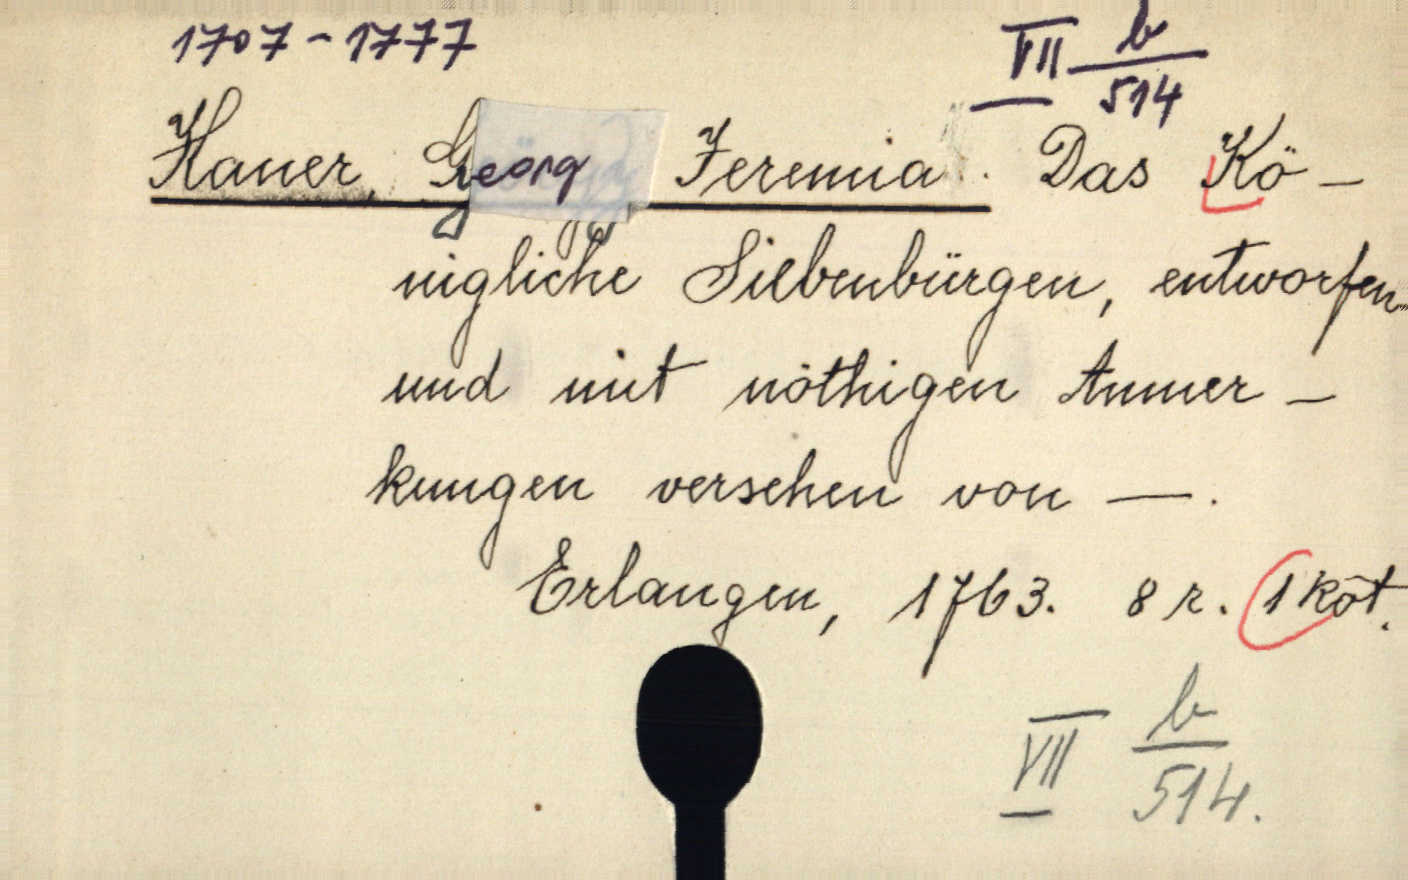 1707-1777
VII b/514
Haner, Georg Jeremia. Das Kö-
nigliche Siebenbürgen, entworfen
und mit nöthigen Anmer-
kungen versehen von —.
Erlangen, 1763. 8 r. 1 köt.
VII b/514.